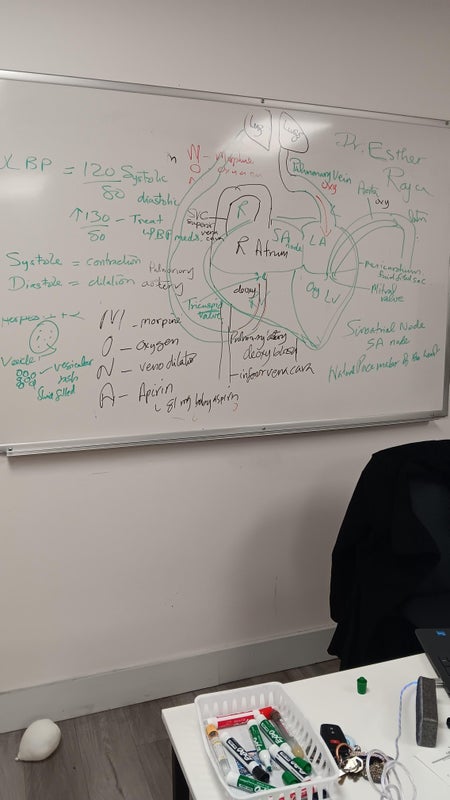 BP = 120 Systolic
80 diastolic
↑130 - Treat
80 BP meds.
Systole = contraction
Diastole = dilation
Pulmonary
artery
Herpes
Vesicle
vesicular
rash
fluid filled
M - morpine
O - oxygen
N - veno dilator
A - Apirin
81 mg baby aspirin
Lung
Lungs
M - Morphine
O
Pulmonary Vein
oxy
Dr. Esther
SVC
superior
vena
cava
R
R Atrium
SA
node
LA
Aorta
oxy
Pericardium
fluid filled sac
Mitral
valve
deoxy
R
Oxy LV
Pulmonary artery
deoxy blood
- inferior vena cava
Sinoatrial Node
SA node
Natural Pacemaker of the heart
EXPO